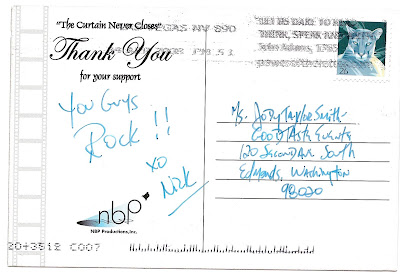 "The Curtain Never Closes"
Thank You
for your support
You Guys
Rock!!
xo
Nick
nbp
NBP Productions, Inc.
20+3512 C007
GAS NV 890
PM 5 1
LET US DARE TO
THINK, SPEAK AND
John Adams, 1765
26
Ms. Jody Taylor Smith
Good Taste Events
120 Second Ave South
Edmonds, Washington
98020